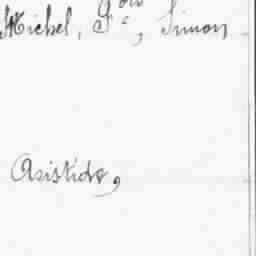 Michel, Simon
Aristide,